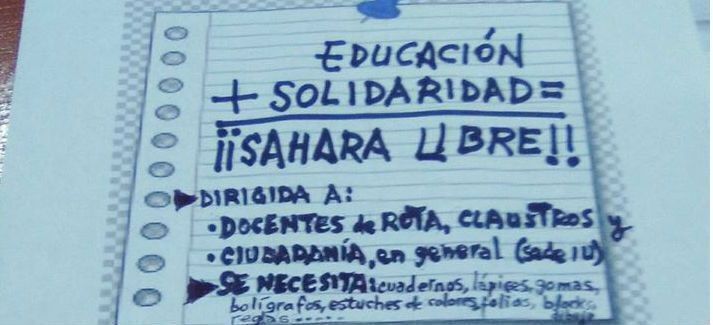 EDUCACIÓN
+ SOLIDARIDAD=
¡¡SAHARA LIBRE!!
DIRIGIDA A:
• DOCENTES de ROTA, CLAUSTROS y
• CIUDADANÍA, en general (sede IU)
SE NECESITA: cuadernos, lápices, gomas,
bolígrafos, estuches de colores, folios, blocks,
dibujo
reglas.....